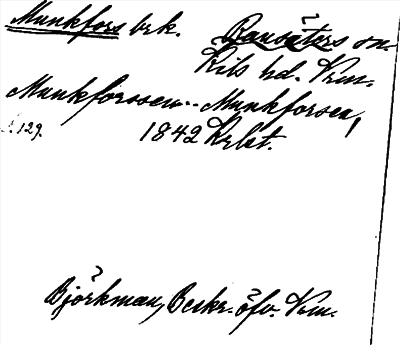 Munkfors brk. Ransäters sn.
Kils hd. Vrm.
Munkforssen -- Munkforsen,
s. 129. 1842 Krbt.
Björkman, Beskr. öfv. Vrm.